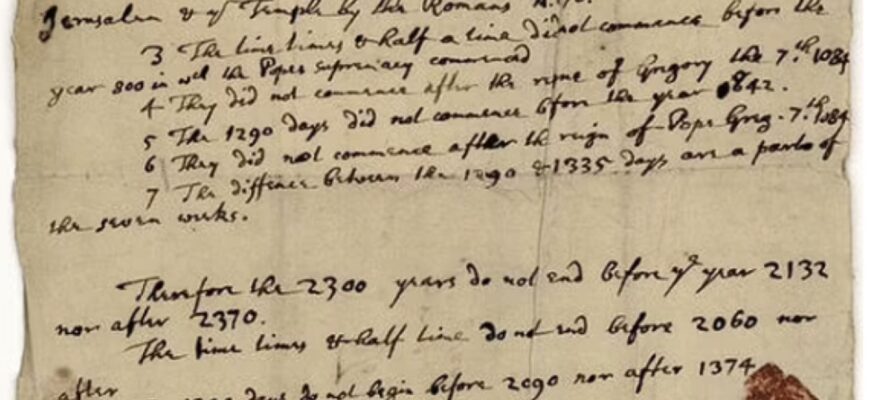 Jerusalem & yͤ Temple by the Romans A.
3 The time times & half a time did not commence before the
year 800 in wch the Popes supremacy commenced
4 They did not commence after the reigne of Gregory the 7.th 1084
5 The 1290 days did not commence bfore the year 842.
6 They did not commence after the reign of Pope Greg. 7.th 1084
7 The diffence between the 1290 & 1335 days are a parts of
the seven weeks.
Therefore the 2300 years do not end before yͤ year 2132
nor after 2370.
The time times & half time do not end before 2060 nor
after
days do not begin before 2090 nor after 1374